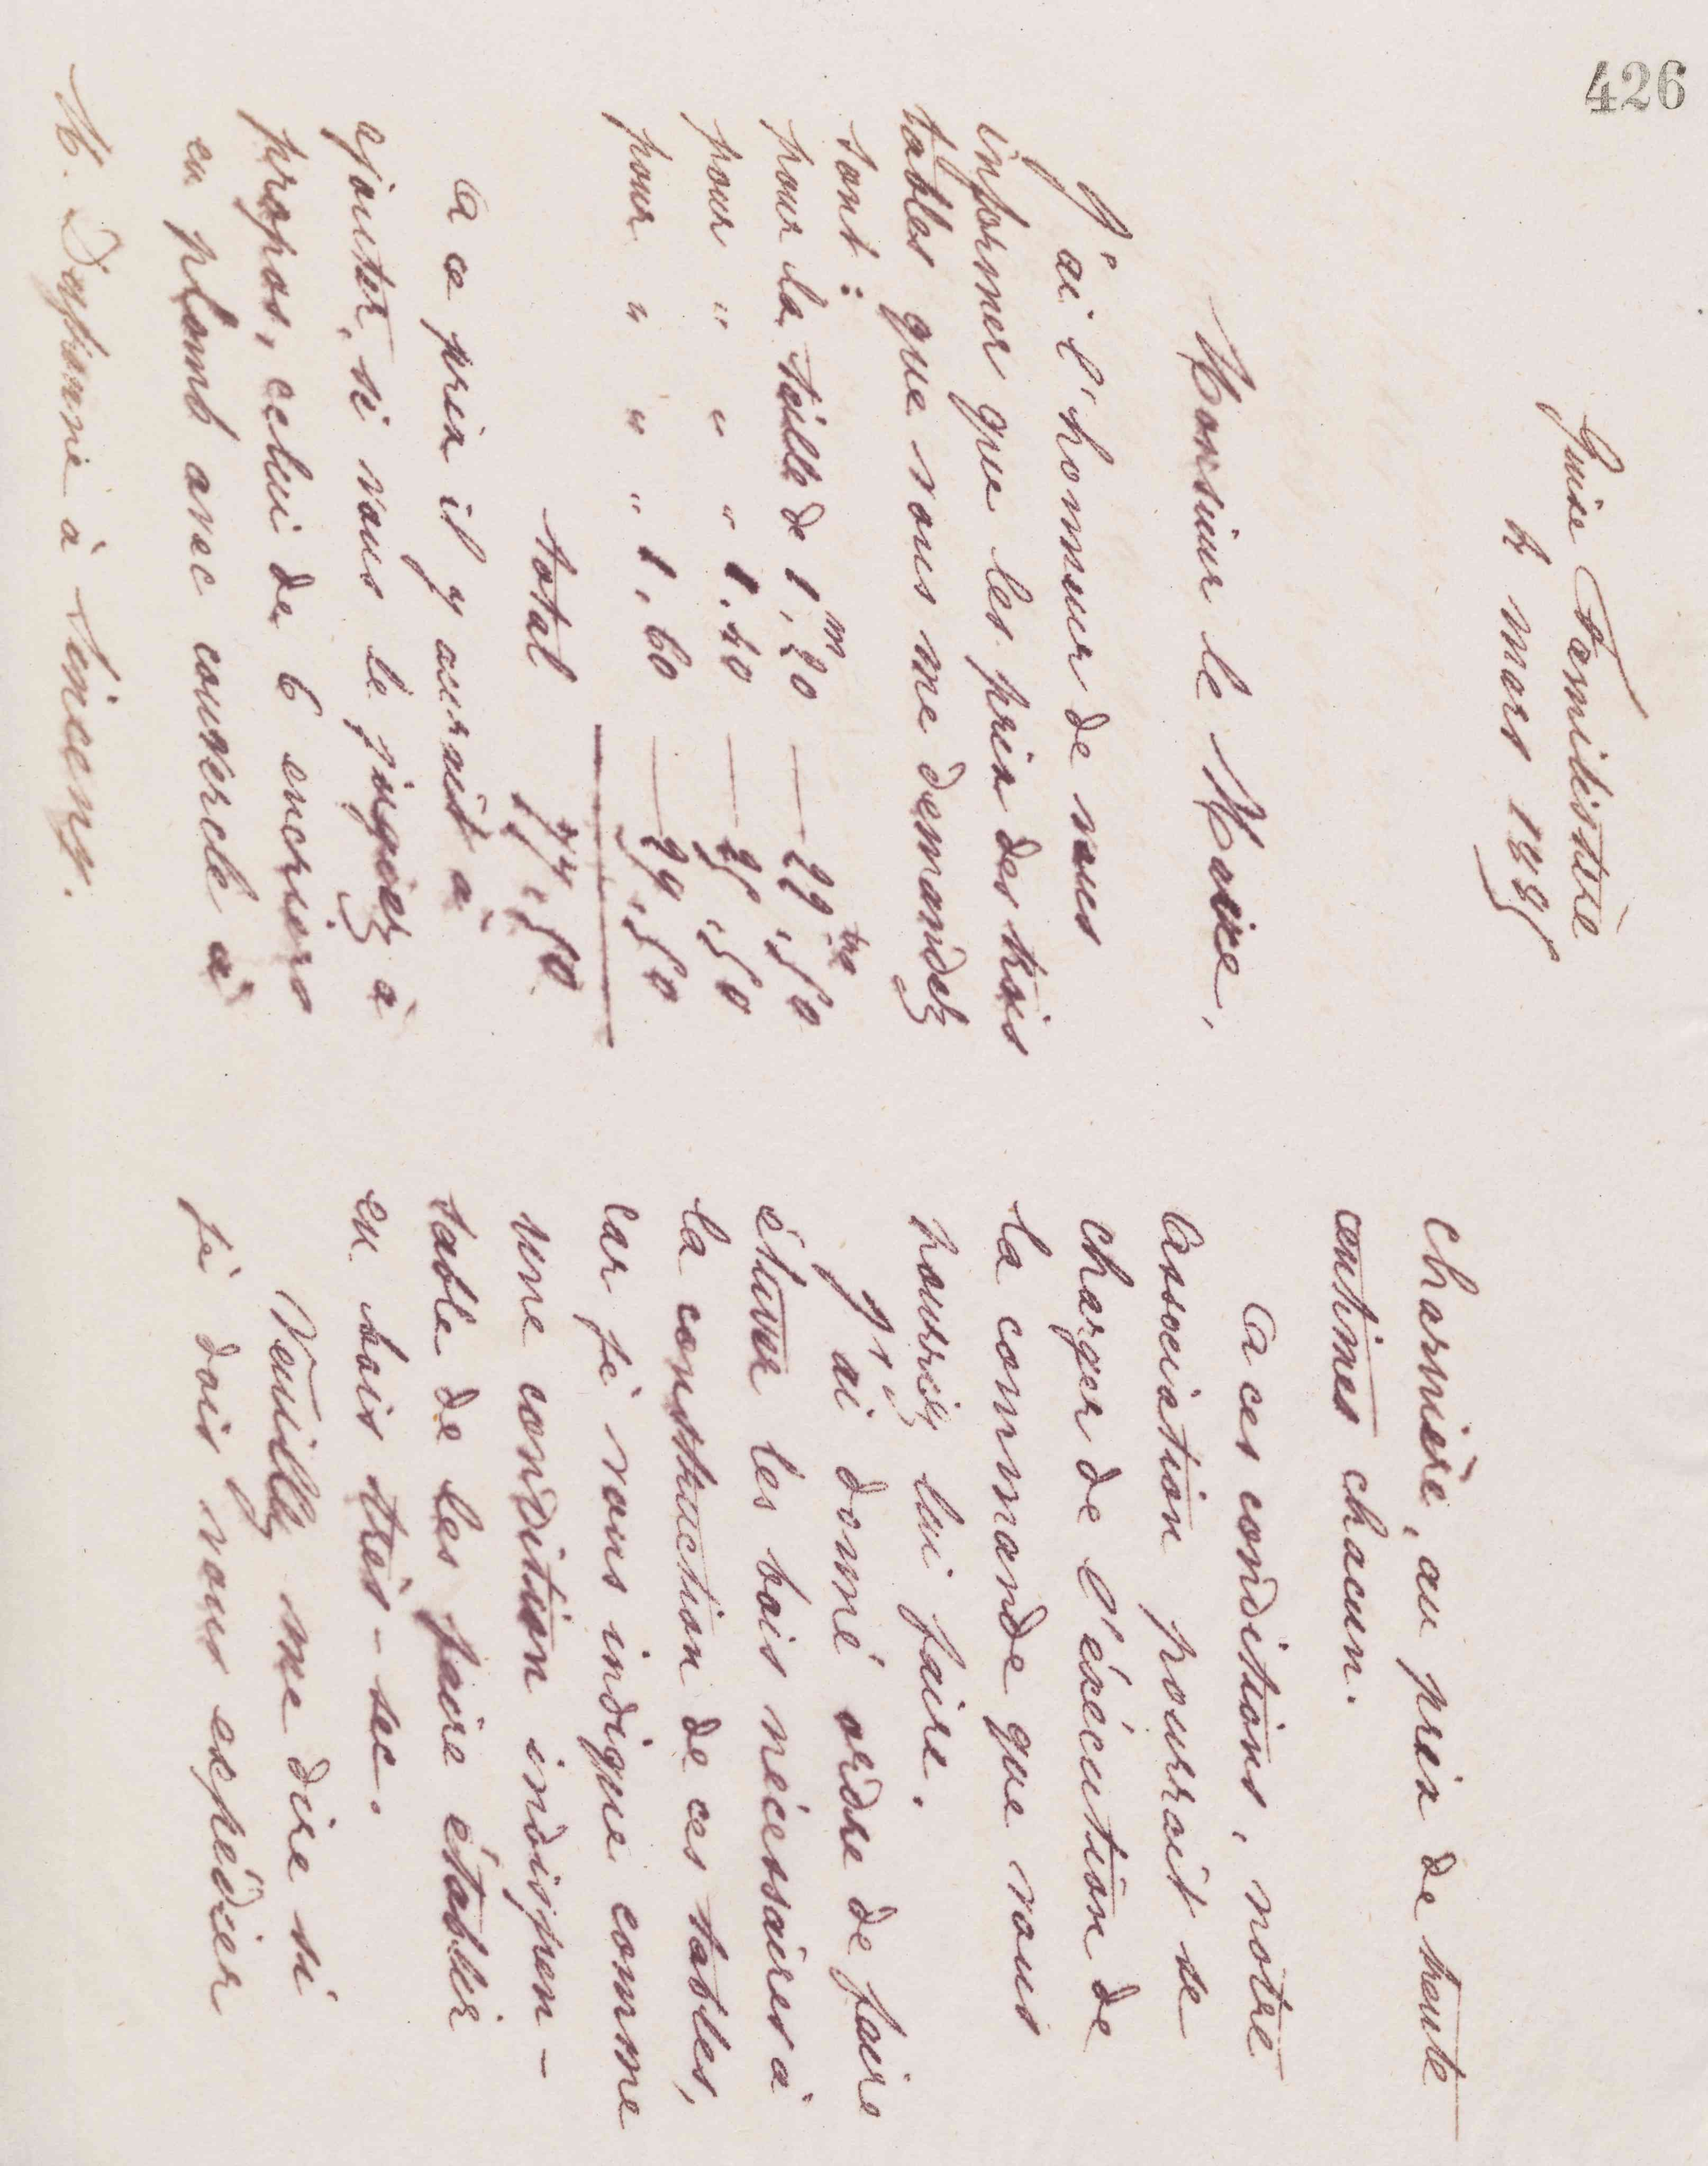 426
Guise Familistère
2 mars 1885
Monsieur le Maire,
J'ai l'honneur de vous
informer que les prix des trois
tables que vous me demandez
sont :
pour la taille de 1,m20 — 22,frs50
pour " " " 1.40 — 25,50
pour " " " 1,60 — 29,50
total 77,50
A ce prix il y aurait à
ajouter, si vous le jugiez à
propos, celui de 6 encriers
en plomb avec couvercle à
M. à Sinceny.
charnière, au prix de trente
centimes chacun.
A ces conditions, notre
Association pourrait se
charger de l'éxécution de
la commande que vous
pourriez lui faire.
J'ai donné ordre de faire
étuver les bois nécessaires à
la construction de ces tables,
car je vous indique comme
une condition indispen-
sable de les faire établir
en bois très-sec.
Veuillez me dire si
je dois vous expédier